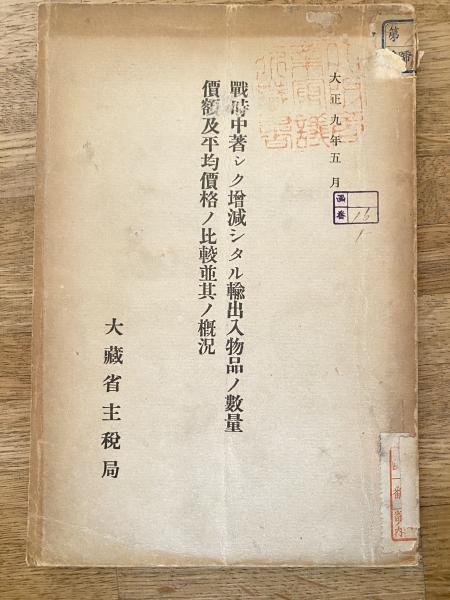 大正九年五月
戰時中著シク增減シタル輸出入物品ノ數量
價額及平均價格ノ比較並其ノ槪況
大藏省主稅局
第
號
函
番
16
1